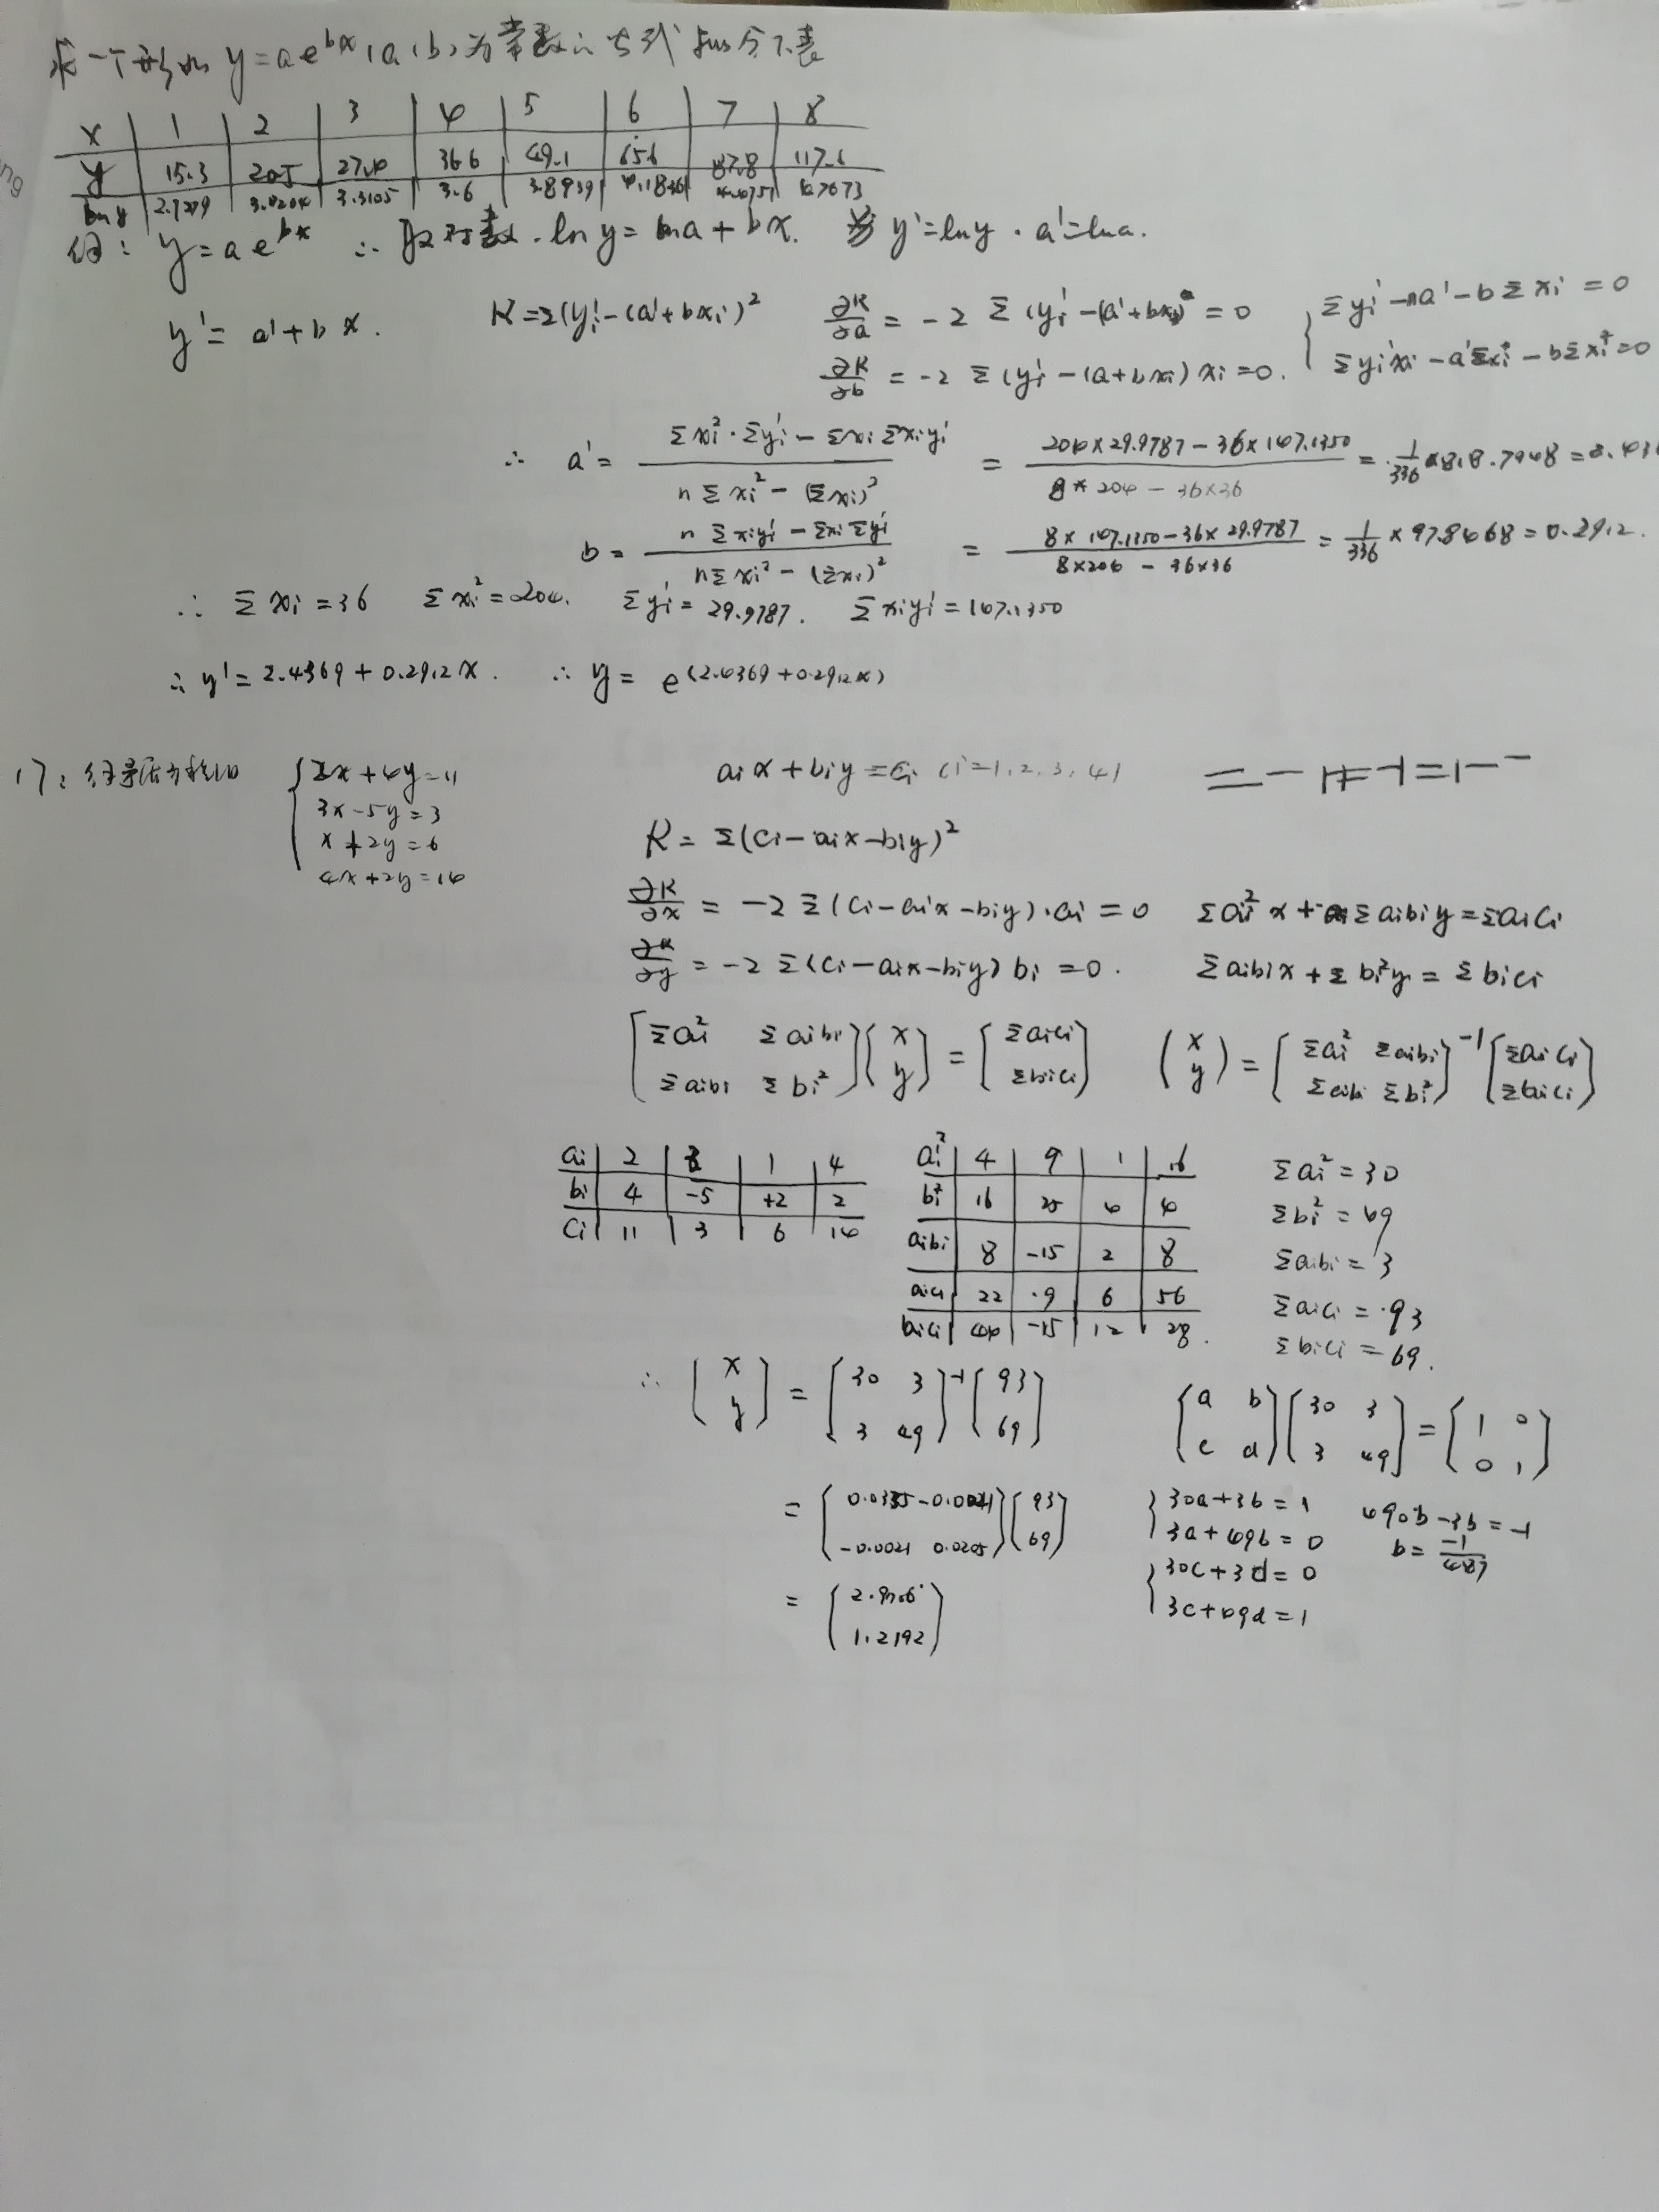 求一个形如 y=ae^{bx} (a, b) 为常数的
x | 1 | 2 | 3 | 4 | 5 | 6 | 7 | 8
y | 15.3 | 20.5 | 27.4 | 36.6 | 49.1 | 65.6 | 87.8 | 117.6
ln y | 2.7279 | 3.0204 | 3.3105 | 3.6 | 3.8939 | 4.1836
y=ae^{bx} ∴ 取对数. ln y = ln a + bx. y'=lny. a'=lna.
y' = a'+bx. R=Σ(yi'-(a'+bxi))² ∂R/∂a = -2Σ(yi'-(a'+bxi)) = 0 { Σyi'-na'-bΣxi=0
∂R/∂b = -2Σ(yi'-(a+bxi))xi=0. Σyi'xi-a'Σxi-bΣxi²=0
∴ a' = (Σxi²·Σyi'-ΣxiΣxiyi')/(nΣxi²-(Σxi)²) = (204×29.9787-36×147.1350)/(8×204-36×36) = 1/336 ×818.7948=2.436
b = (nΣxiyi'-ΣxiΣyi')/(nΣxi²-(Σxi)²) = (8×147.1350-36×29.9787)/(8×204-36×36) = 1/336 ×97.8468=0.2912.
∴ Σxi=36 Σxi²=204. Σyi'=29.9787. Σxiyi'=147.1350
∴ y'=2.4369+0.2912x. ∴ y= e^{(2.4369+0.2912x)}
17: { 2x+4y=11
3x-5y=3
x+2y=6
4x+2y=14
aix+biy=ci (i=1,2,3,4)
R=Σ(ci-aix-biy)²
∂R/∂x = -2Σ(ci-aix-biy)·ai=0 Σai²x+Σaibiy=Σaici
∂R/∂y = -2Σ(ci-aix-biy)bi=0. Σaibix+Σbi²y=Σbici
[Σai² Σaibi; Σaibi Σbi²](x; y) = [Σaici; Σbici] (x; y) = [Σai² Σaibi; Σaibi Σbi²]^{-1}[Σaici; Σbici]
ai | 2 | 3 | 1 | 4
bi | 4 | -5 | +2 | 2
ci | 11 | 3 | 6 | 14
ai² | 4 | 9 | 1 | 16
bi² | 16 | 25 | 4 | 4
aibi | 8 | -15 | 2 | 8
aici | 22 | 9 | 6 | 56
bici | 44 | -15 | 12 | 28.
Σai²=30
Σbi²=49
Σaibi=3
Σaici=93
Σbici=69.
∴ [x; y] = [30 3; 3 49]^{-1}[93; 69]
= [0.0335 -0.0021; -0.0021 0.0205][93; 69]
= [; 1.2192]
[a b; c d][30 3; 3 49] = [1 0; 0 1]
{ 30a+3b=1
3a+49b=0
{ 30c+3d=0
3c+49d=1
490b-3b=-1
b=-1/487